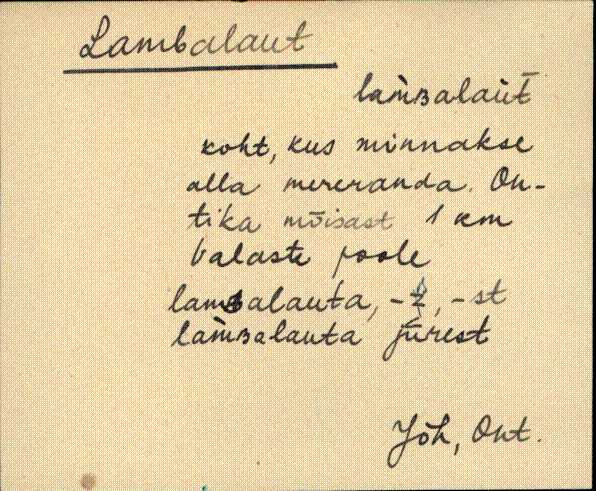 Lambalaut
lam̀ʙalaùt̄
koht, kus minnakse
alla mereranda. On-
tika mõisast 1 km
Valaste poole
lamʙalauta, -t, -st
lam̀ʙalauta jūrest
Jõh, Ont.